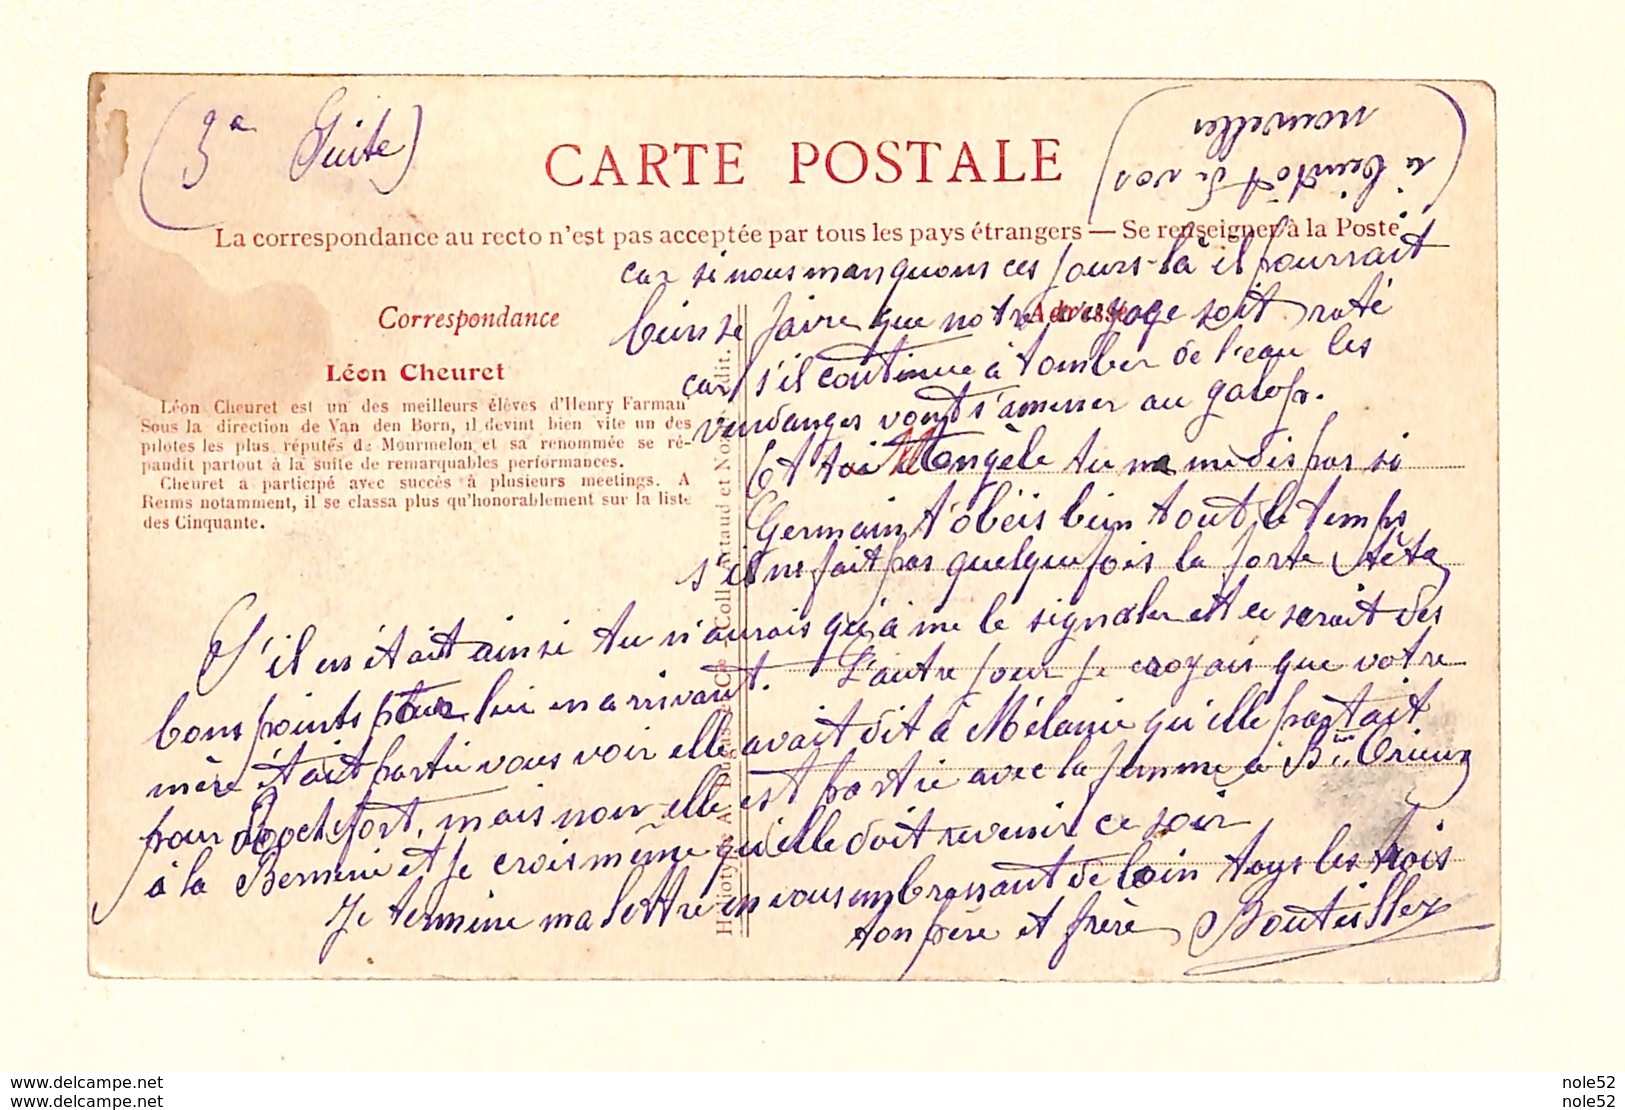 (3e Suite)
CARTE POSTALE
(à bientôt de vos
nouvelles
La correspondance au recto n'est pas acceptée par tous les pays étrangers — Se renseigner à la Poste
Correspondance
Adresse
Léon Cheuret
Léon Cheuret est un des meilleurs élèves d'Henry Farman
Sous la direction de Van den Born, il devint bien vite un des
pilotes les plus réputés de Mourmelon et sa renommée se ré-
pandit partout à la suite de remarquables performances.
Cheuret a participé avec succès à plusieurs meetings. A
Reims notamment, il se classa plus qu'honorablement sur la liste
des Cinquante.
car si nous manquons ces jours-là il pourrait
bien se faire que notre voyage soit raté
car s'il continue à tomber de l'eau les
vendanges vont s'amener au galop.
Et toi Angèle tu ne me dis pas si
Germain t'obéis bien tout le temps
s'il ne fait pas quelquefois la forte tête
S'il en était ainsi tu n'aurais qu'à me le signaler et ce serait des
bons points pour lui en arrivant. L'autre jour je croyais que votre
mère était partie vous voir elle avait dit à Mélanie qu'elle partait
pour Rochefort, mais non elle est partie avec la femme à Orieux
à la Bernerie et je crois même qu'elle doit revenir ce soir
Je termine ma lettre en vous embrassant de loin tous les trois
ton père et frère Bouteiller
Coll. Artaud et Nozais, édit.
delcampe.net
delcampe.net
nole52
nole52